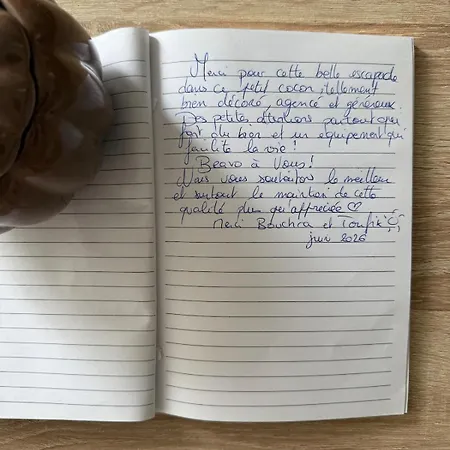 Merci pour cette belle escapade
dans ce petit cocon, tellement
bien décoré, agencé et généreux.
Des petites attentions partout qui
font du bien et un équipement qui
facilite la vie !
Bravo à Vous !
Nous vous souhaitons le meilleur
et surtout le maintien de cette
qualité plus qu'appréciée ♡
Merci Bouchra et Toufik
juin 2026